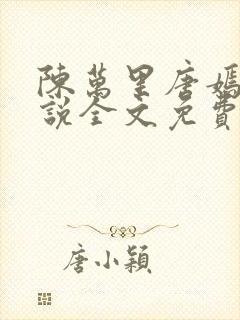 陳萬里唐嫣
說全文免費
唐小穎